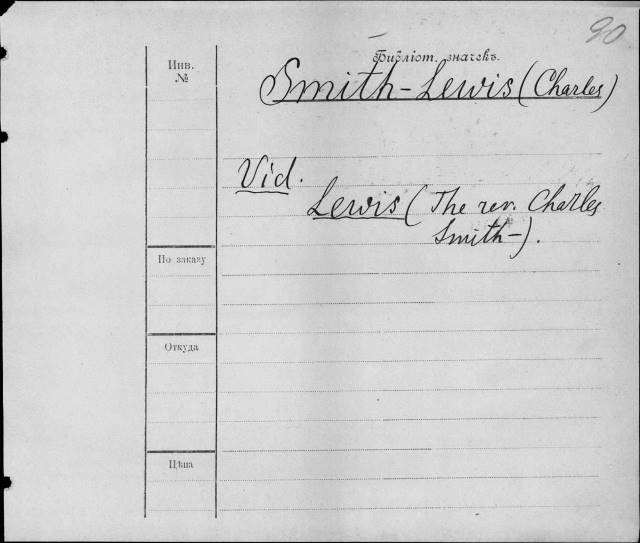 90
Библіот. значекъ.
Инв.
№
Smith-Lewis (Charles)
Vid.
Lewis (The rev. Charles
Smith-).
По заказу
Откуда
Цѣна